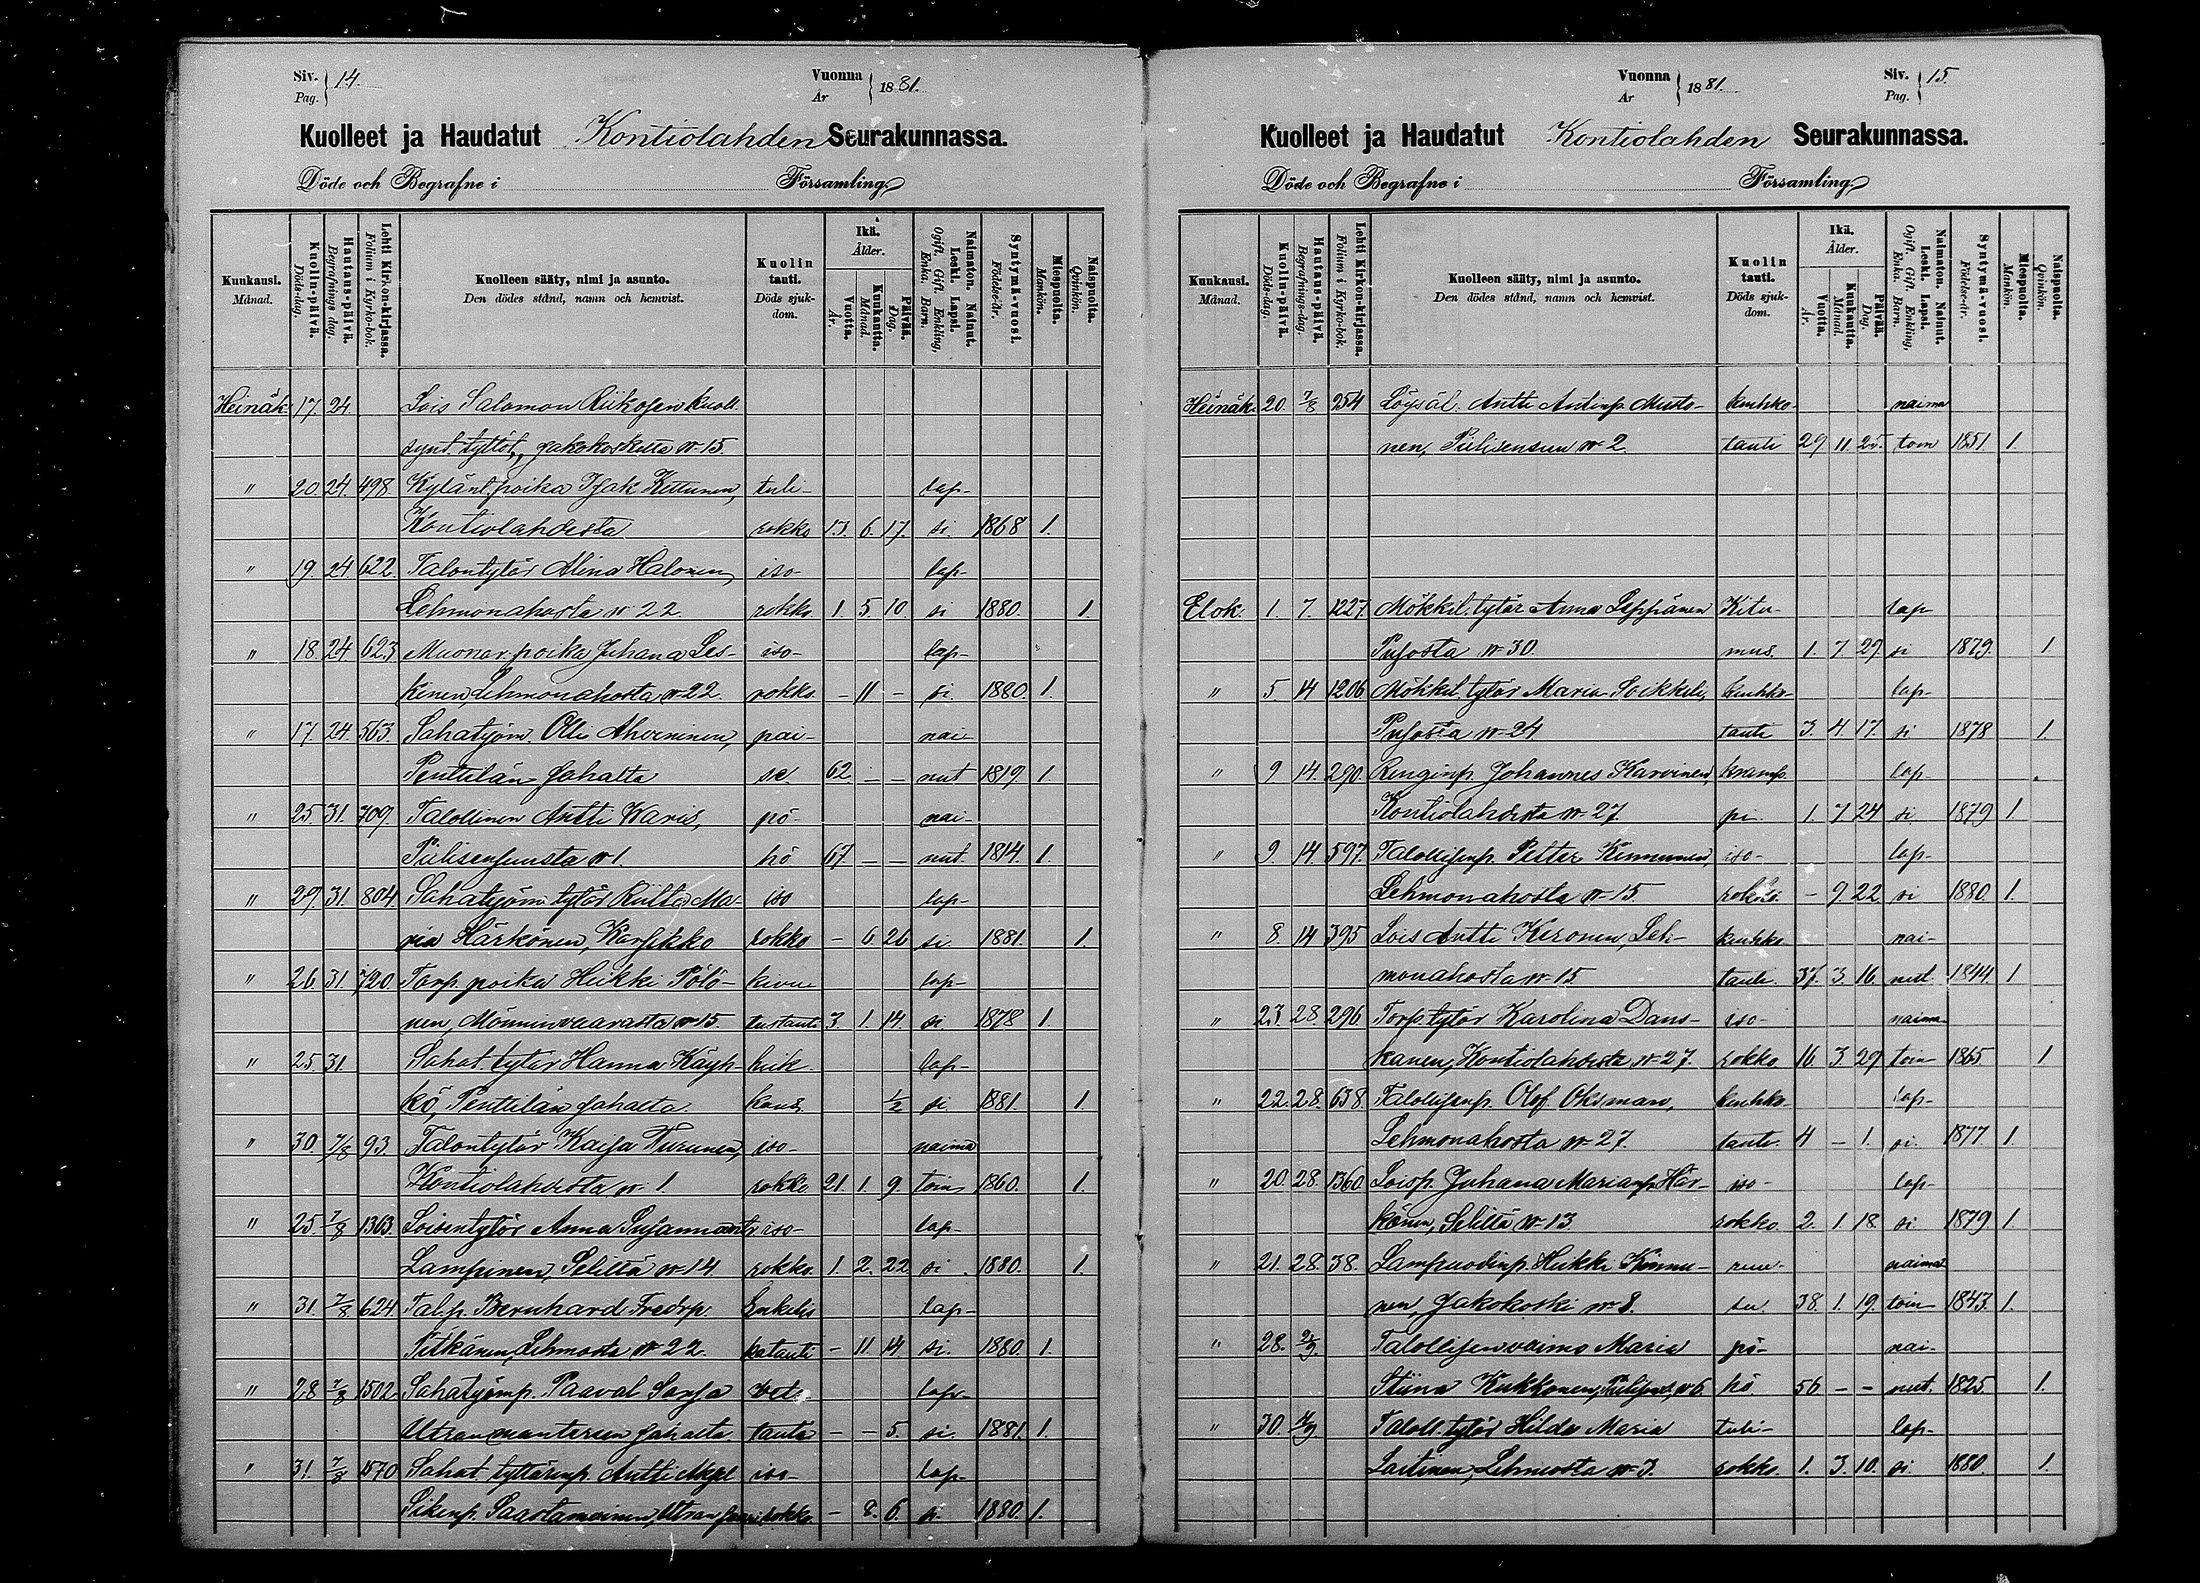 Siv. 14.
Pag.
Vuonna 1881.
År
Kuolleet ja Haudatut Kontiolahden Seurakunnassa.
Döde och Begrafne i Församling
Kuukausi. Månad.
Kuolin-päivä. Döds-dag.
Hautaus-päivä. Begrafnings dag.
Lehti Kirkon-kirjassa. Folium i Kyrko-bok.
Kuolleen sääty, nimi ja asunto. Den dödes stånd, namn och hemvist.
Kuolin tauti. Döds sjukdom.
Ikä. Ålder.
Vuotta. År.
Kuukautta. Månad.
Päivää. Dag.
Naimaton. Nainut. Leski. Lapsi. Ogift. Gift. Enkling, Enka. Barn.
Syntymä-vuosi. Födelse-år.
Miespuolta. Mankön.
Naispuolta. Qvinkön.
Heinäk 17. 24. Lois Salomon Riikosen kuoll.
synt. tyttöl., Jakokoskelta № 15.
" 20. 24. 498. Kylänl. poika Isak Kettunen, tuli- lap-
Kontiolahdesta rokko 13. 6. 17. si. 1868 1.
" 19. 24. 622. Talontytär Alina Halonen, iso- lap-
Lehmonahosta № 22. rokko. 1. 5. 10. si 1880. 1.
" 18. 24. 623 Muonar. poika Juhana Les- iso- lap-
kinen, Lehmonahosta № 22. rokko. - 11 - si. 1880. 1.
" 17. 24. 563. Sahatyöm. Olli Ahveninen, pai- nai-
Penttilän sahalta se. 62. - - nut 1819. 1
" 25. 31. 709. Talollinen Antti Waris, pö- nai-
Piilisensuusta № 1. hö 67. - - nut. 1814. 1.
" 29. 31. 804. Sahatyöm. tytär Riitta Ma- iso lap-
ria Härkönen, Karsikko rokko - 6 26 si. 1881. 1.
" 26. 31. 720. Torp. poika Heikki Pölö- kivu lap-
nen, Mönninvaarasta № 15. tustauti 3. 1. 14. si 1878 1.
" 25. 31. Sahat. tytär Hanna Käyh- heik lap-
kö, Penttilän sahalta. kous. 1/2 si 1881. 1.
" 30. 7/8 93. Talontytär Kaisa Turunen, iso- naima
Kontiolahdesta № 1. rokko 21. 1. 9. toin 1860. 1.
" 25. 7/8 1363. Loisentytär Anna Susannantr iso- lap-
Lampinen, Selittä № 14. rokko. 1. 2. 22 si. 1880. 1.
" 31. 7/8 624 Tal. p. Bernhard Fredrp. lap-
Pitkänen, Lehmosta № 22. katauti - 11 14. si. 1880. 1.
" 28 7/8 1502. Sahatyömp. Paaval Sarja veto- lap-
Utran mantereen sahalta. tauti - - 5. si. 1881. 1.
" 31. 7/8 1570 Sahat. tyttärenp. Antti Aksel iso- lap-
Saastamoinen, Utran rokko. - 8. 6. si. 1880. 1.
Vuonna 1881.
År
Siv. 15.
Pag.
Kuolleet ja Haudatut Kontiolahden Seurakunnassa.
Döde och Begrafne i Församling
Kuukausi. Månad.
Kuolin-päivä. Döds-dag.
Hautaus-päivä. Begrafnings-dag.
Lehti Kirkon-kirjassa. Folium i Kyrko-bok.
Kuolleen sääty, nimi ja asunto. Den dödes stånd, namn och hemvist.
Kuolin tauti. Döds sjukdom.
Ikä. Ålder.
Vuotta. År.
Kuukautta. Månad.
Päivää. Dag.
Naimaton. Nainut. Leski. Lapsi. Ogift. Gift. Enkling, Enka. Barn.
Syntymä-vuosi. Födelse-år.
Miespuolta. Mankön.
Naispuolta. Qvinkön.
Heinäk. 20. 7/8 254 Löysäl. Antti Antinp. Musto- keuhko- naima
nen, Piilisensuu № 2. tauti 29. 11. 25. tom 1851. 1.
Elok. 1. 7. 1227. Mökkil. tytär Anna Leppänen Kitu- lap
Pusosta № 30. mus. 1. 7 29. si 1879. 1
" 5. 14 1206 Mökkil. tytär Maria Soikkeli, keuhko- lap-
Pusosta № 24 tauti 3. 4. 17. si 1878 1.
" 9 14. 290. Renginp. Johannes Karvinen, kramp lap-
Kontiolahdesta № 27. pi. 1. 7 24 si. 1879 1.
" 9. 14 597. Talollisenp. Petter Kinnunen, iso- lap-
Lehmonahosta № 15. rokko. - 9 22 si 1880. 1.
" 8. 14 395 Lois Antti Keronen, Leh- keuhko nai-
monahosta № 15. tauti. 37. 3. 16. nut. 1844 1
" 23. 28. 296. Torp. tytär Karolina Dans- iso- naima-
kanen, Kontiolahdesta № 27. rokko. 16. 3. 29 toin 1865. 1
" 22. 28. 638. Talollisenp. Olof Oksman, keuhko- lap-
Lehmonahosta № 27. tauti. 4 - 1. si. 1877 1.
" 20. 28. 1360. Loisp. Juhana Marianp. Här- iso- lap-
könen, Selittä № 13 rokko. 2. 1. 18. si 1879. 1
" 21. 28. 38. Lampuodinp. Heikki Kinnu- ruu- naima
nen, Jakokoski № 8. su 38. 1. 19. toin 1843. 1.
" 28. 2/9. Talollisen vaimo Maria pö- nai-
Stiina Kukkonen, Piilisens. № 6. hö 56 - - nut. 1825. 1.
" 30. 4/9 Taloll. tytär Hilda Maria tuli- lap-
Laitinen, Lehmosta № 3. rokko. 1. 3. 10. si 1880. 1.